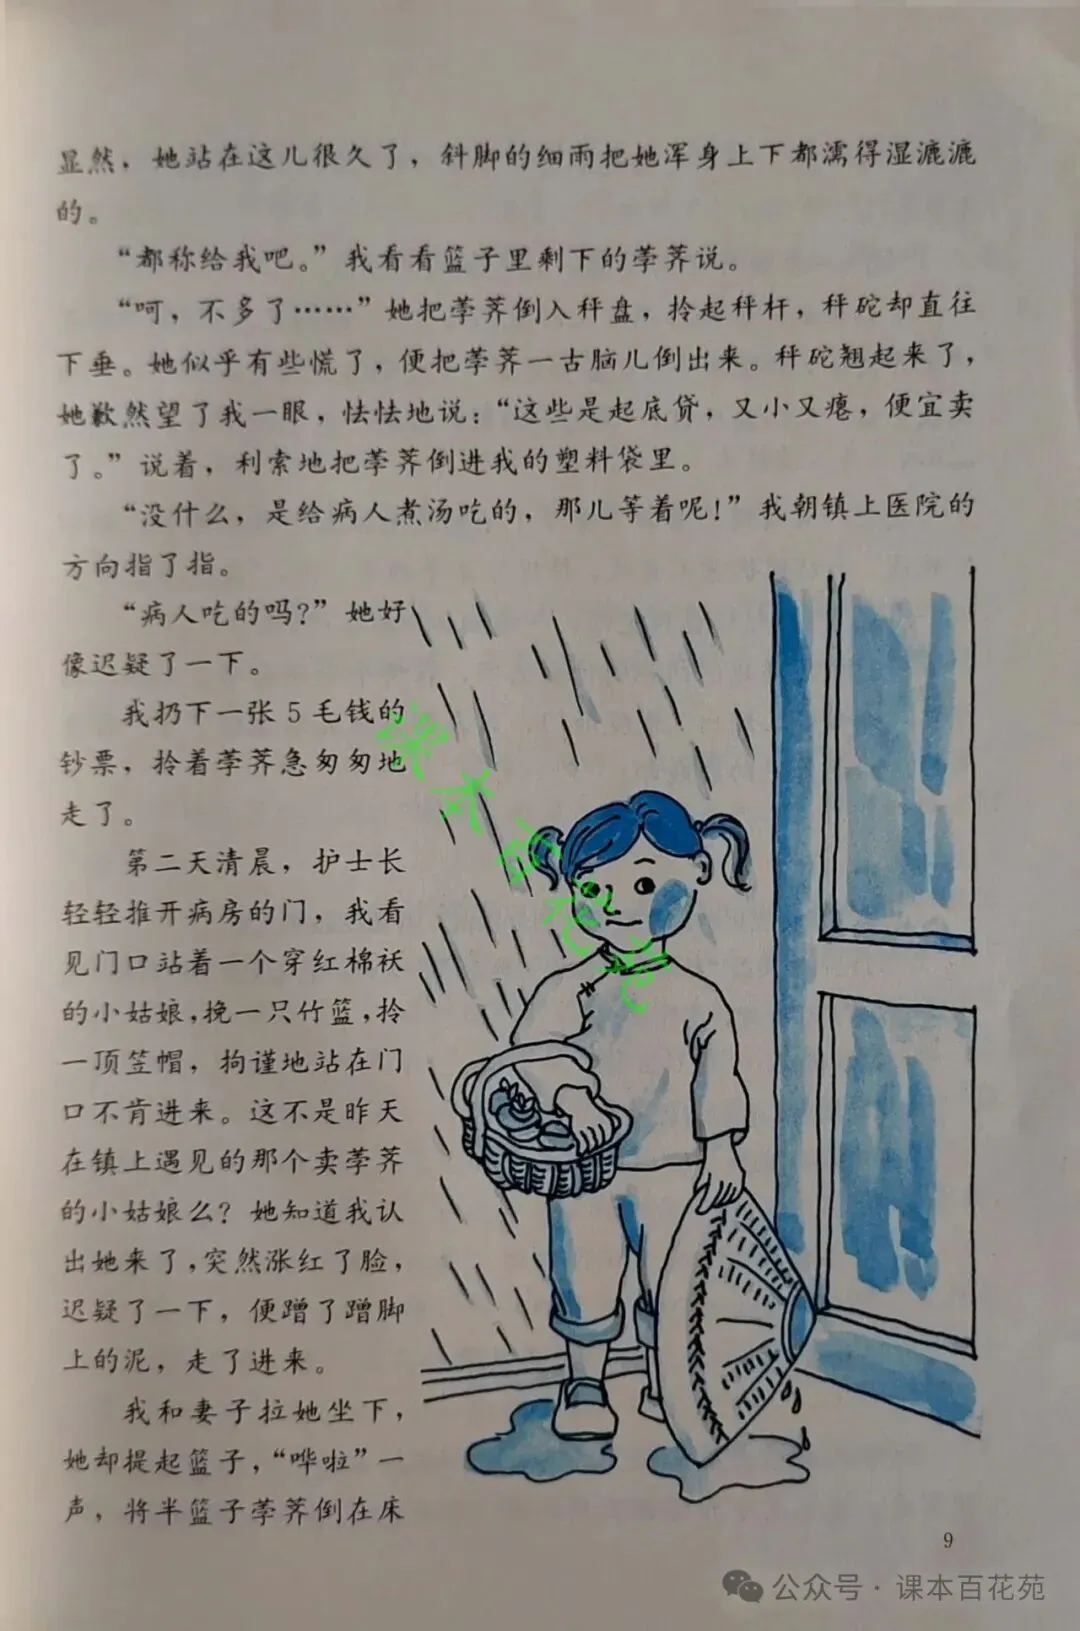 显然，她站在这儿很久了，斜脚的细雨把她浑身上下都濡得湿漉漉
的。
“都称给我吧。”我看看篮子里剩下的荸荠说。
“呵，不多了……”她把荸荠倒入秤盘，拎起秤杆，秤砣却直往
下垂。她似乎有些慌了，便把荸荠一古脑儿倒出来。秤砣翘起来了，
她歉然望了我一眼，怯怯地说：“这些是起底货，又小又瘪，便宜卖
了。”说着，利索地把荸荠倒进我的塑料袋里。
“没什么，是给病人煮汤吃的，那儿等着呢！”我朝镇上医院的
方向指了指。
“病人吃的吗？”她好
像迟疑了一下。
我扔下一张5毛钱的
钞票，拎着荸荠急匆匆地
走了。
第二天清晨，护士长
轻轻推开病房的门，我看
见门口站着一个穿红棉袄
的小姑娘，挽一只竹篮，拎
一顶笠帽，拘谨地站在门
口不肯进来。这不是昨天
在镇上遇见的那个卖荸荠
的小姑娘么？她知道我认
出她来了，突然涨红了脸，
迟疑了一下，便蹭了蹭脚
上的泥，走了进来。
我和妻子拉她坐下，
她却提起篮子，“哗啦”一
声，将半篮子荸荠倒在床
课本百花苑
9
公众号·课本百花苑